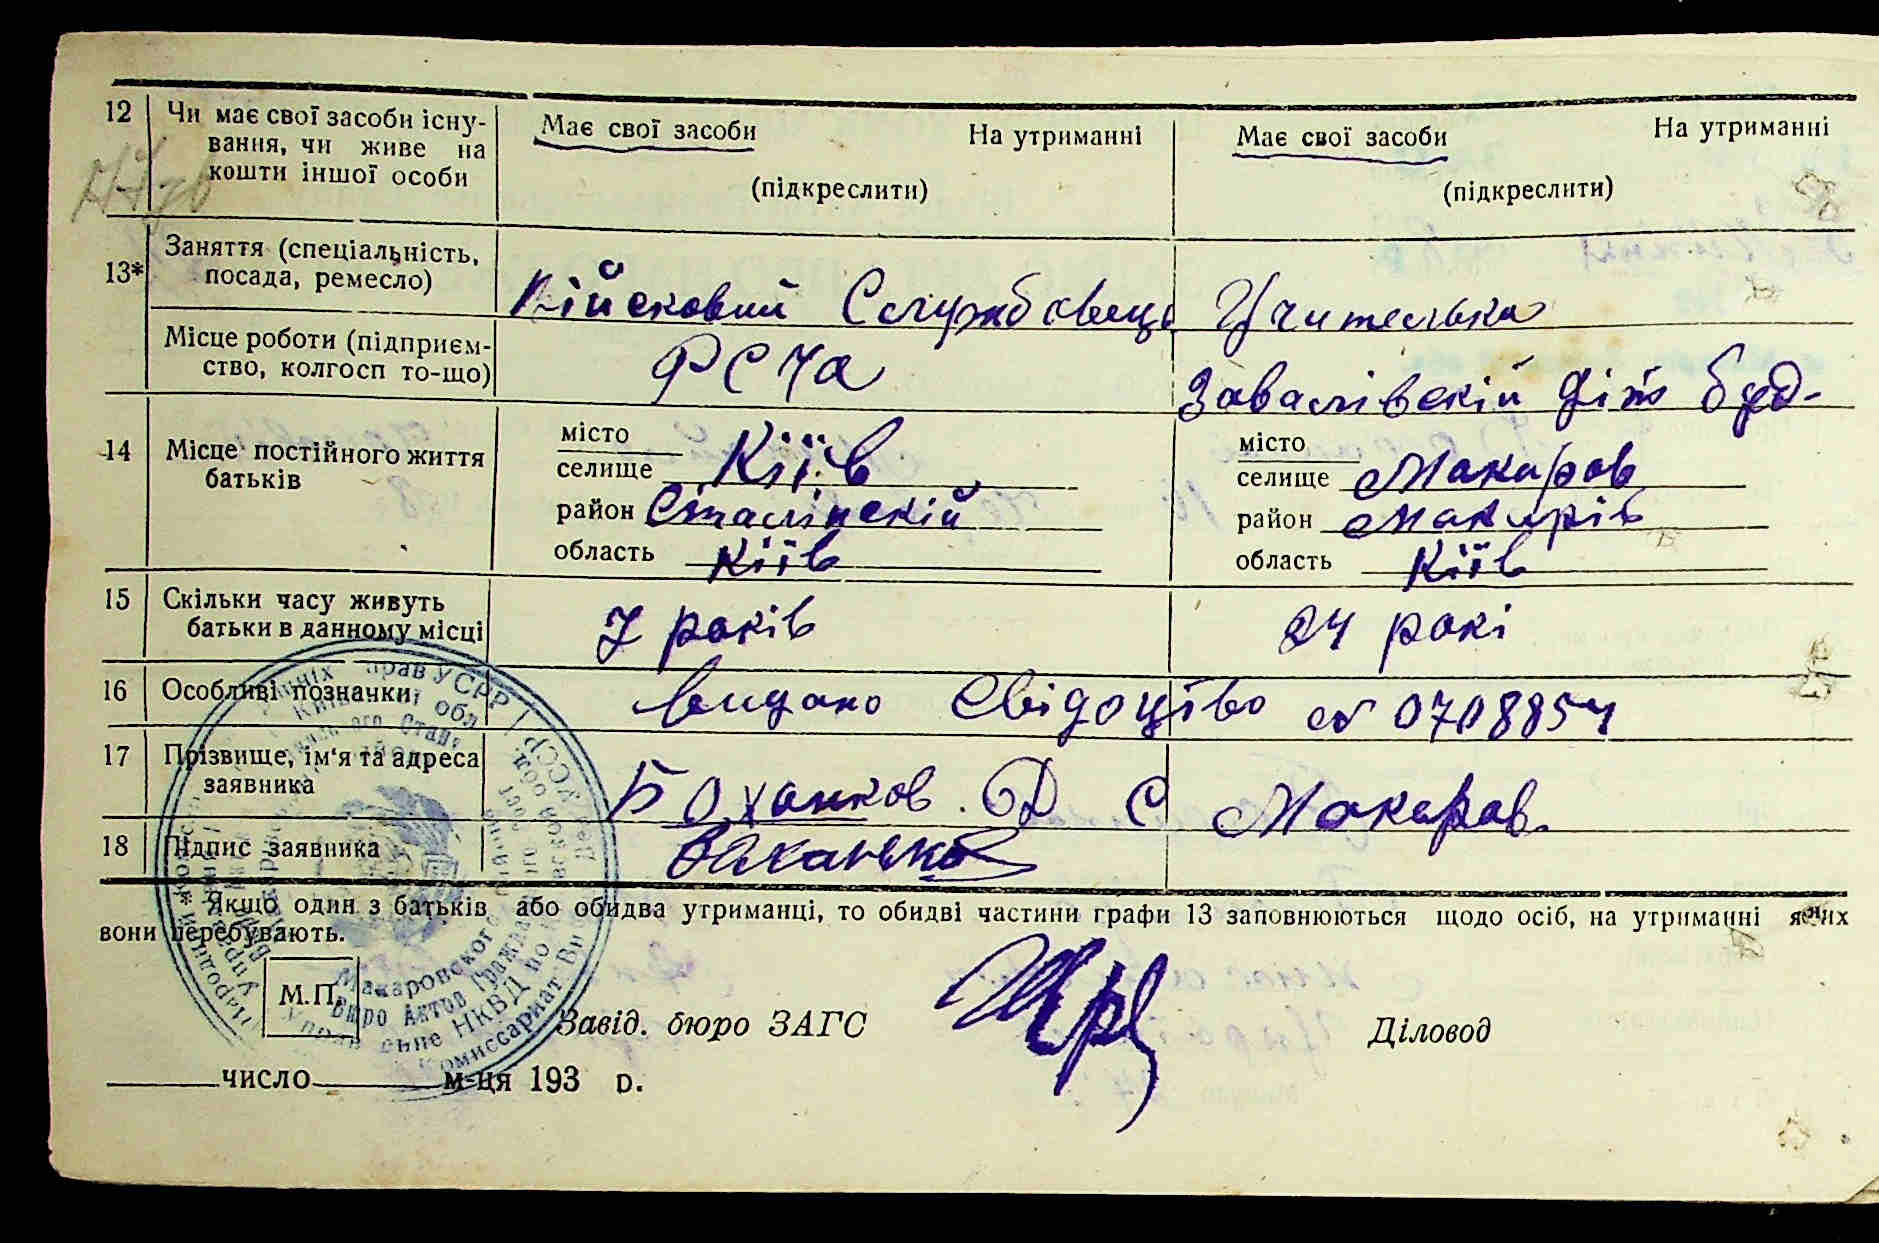 12 Чи має свої засоби існу-
вання, чи живе на
кошти іншої особи
Має свої засоби На утриманні
(підкреслити)
Має свої засоби На утриманні
(підкреслити)
13* Заняття (спеціальність,
посада, ремесло)
Військовий Службовець Учителька
Місце роботи (підприєм-
ство, колгосп то-що)
РСЧА Завалівскій Діт буд-
14 Місце постійного життя
батьків
місто
селище Київ
район Сталінскій
область Київ
місто
селище Макаров
район Макарів
область Київ
15 Скільки часу живуть
батьки в данному місці
7 років 24 рокі
16 Особливі позначки
видано Свідоцтво № 0708854
17 Прізвище, ім'я та адреса
заявника
Боханков. Д С Макаров.
18 Підпис заявника
* Якщо один з батьків або обидва утриманці, то обидві частини графи 13 заповнюються щодо осіб, на утриманні яких
вони перебувають.
М.П.
Завід. бюро ЗАГС Діловод
число м-ця 193 р.